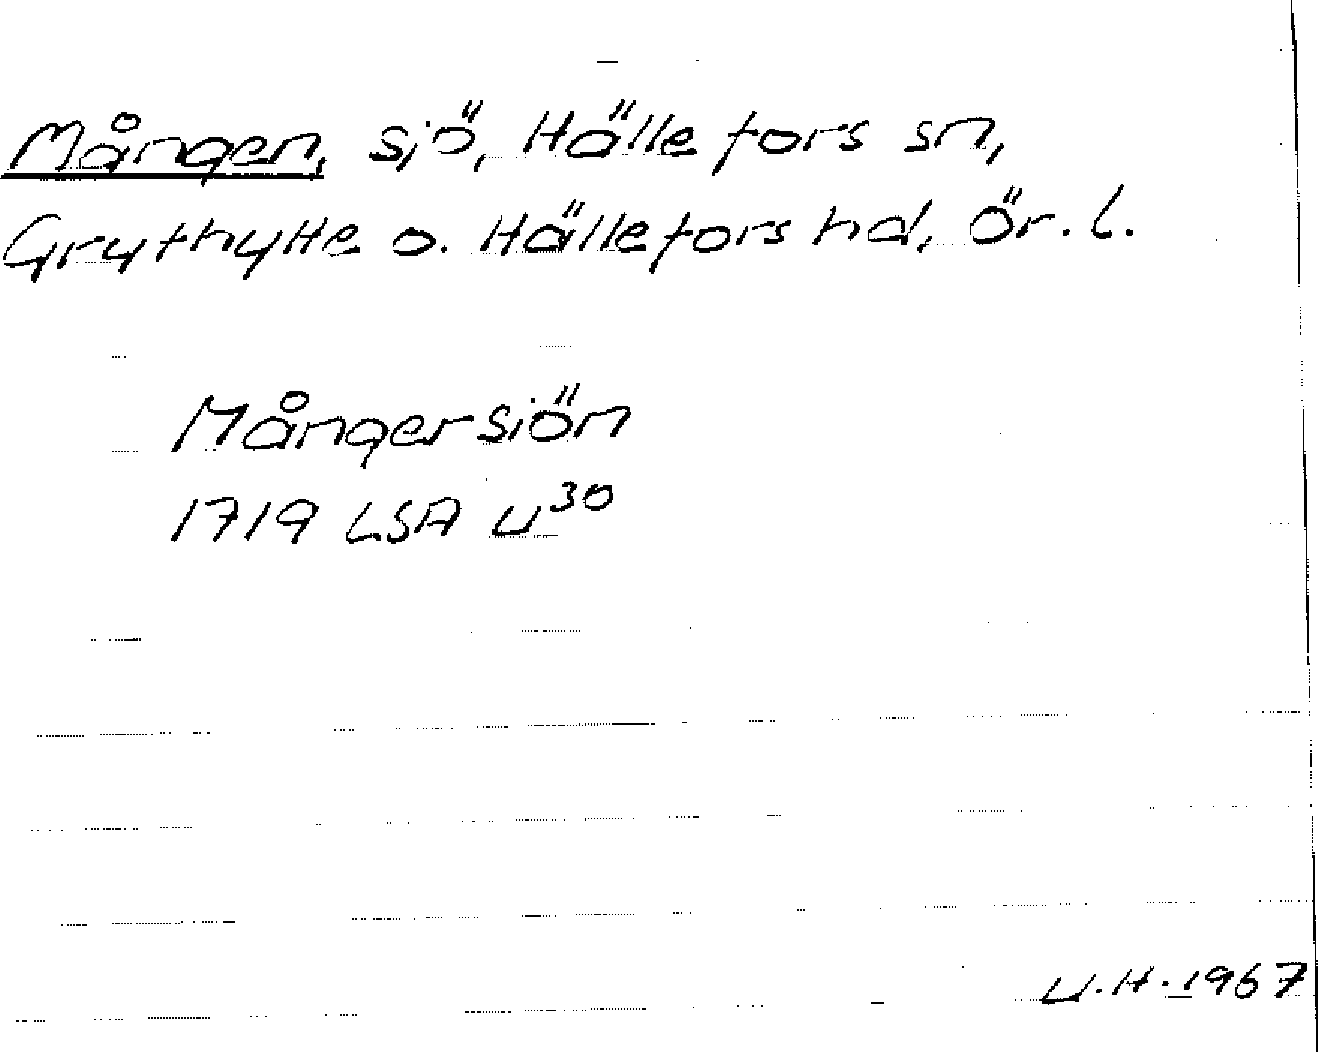 Mången, sjö, Hällefors sn,
Grythytte o. Hällefors hd, Ör. l.
Månger siön
1719 LSA U30
U.H. 1967